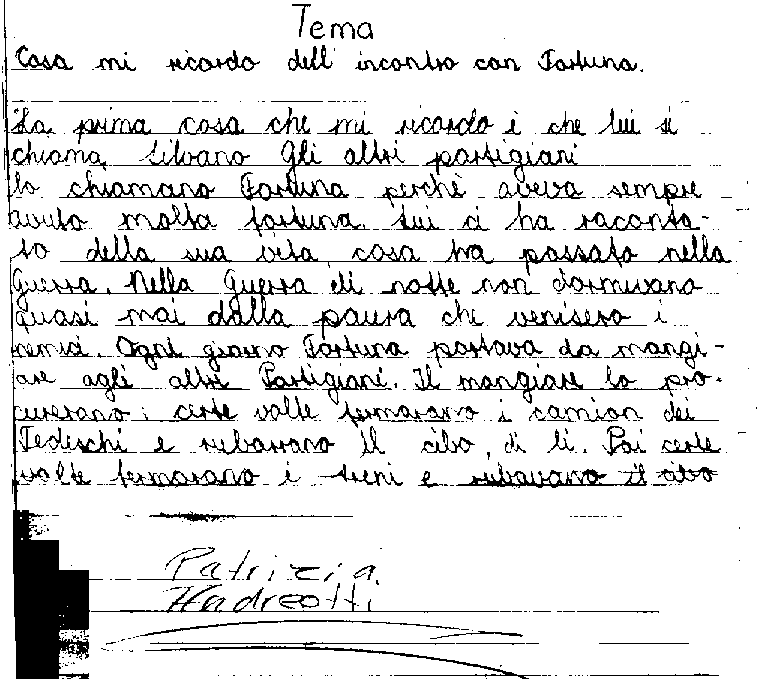 Tema
Cosa mi ricordo dell'incontro con Fortuna.
La prima cosa che mi ricordo è che lui si
chiama, Silvano Gli altri partigiani
lo chiamano Fortuna perchè aveva sempre
avuto molta fortuna. Lui ci ha raconta-
to della sua vita, cosa ha passato nella
Guerra. Nella Guerra di notte non dormivano
quasi mai dalla paura che venisero i
nemici. Ogni giorno Fortuna portava da mangi-
are agli altri Partigiani. Il mangiare lo pro-
curavano: certe volte fermavano i camion dei
Tedeschi e rubavano il cibo, di li. Poi certe
volte fermavano i treni e rubavano il cibo
Patrizia
Andreotti